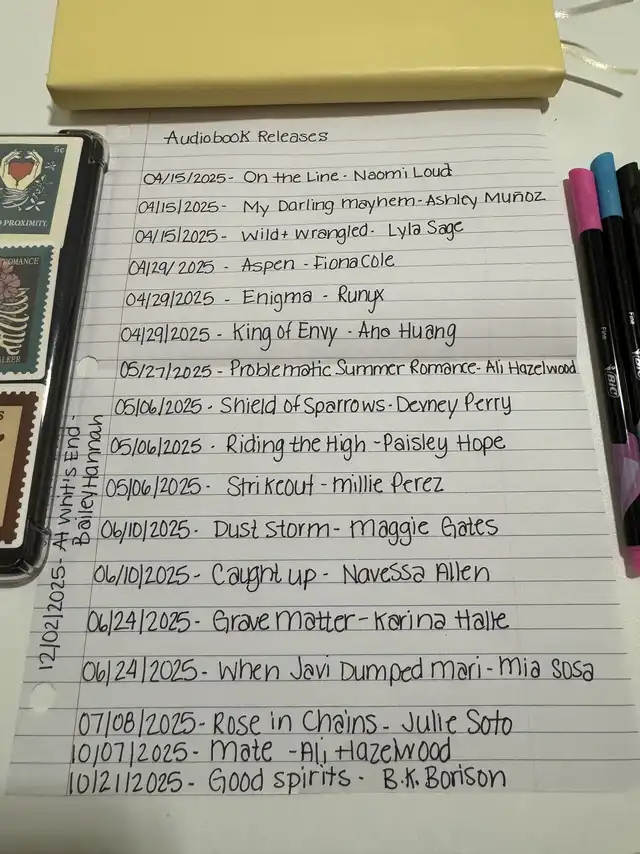 Audiobook Releases
04/15/2025- On the Line - Naomi Loud
04/15/2025- My Darling mayhem-Ashley Muñoz
04/15/2025- Wild+ Wrangled- Lyla Sage
04/29/2025 - Aspen - Fiona Cole
04/29/2025 - Enigma - Runyx
04/29/2025 - King of Envy - Ana Huang
05/27/2025 - Problematic Summer Romance- Ali Hazelwood
05/06/2025 - Shield of Sparrows-Devney Perry
05/06/2025 - Riding the High -Paisley Hope
05/06/2025 - Strikeout - millie Perez
06/10/2025- Dust Storm- Maggie Gates
06/10/2025 - Caught up - Navessa Allen
06/24/2025- Grave Matter-Karina Halle
06/24/2025- When Javi Dumped Mari-Mia Sosa
07/08/2025-Rose in Chains- Julie Soto
10/07/2025 - Mate -Ali Hazelwood
10/21/2025 - Good spirits - B.K. Borison
12/02/2025- At Whit's End -
Bailey Hannah
5c
PROXIMITY
ROMANCE
BIC
Fine